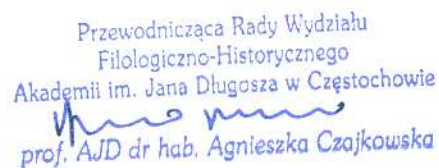 Przewodnicząca Rady Wydziału
Filologiczno-Historycznego
Akademii im. Jana Długosza w Częstochowie
prof. AJD dr hab. Agnieszka Czajkowska